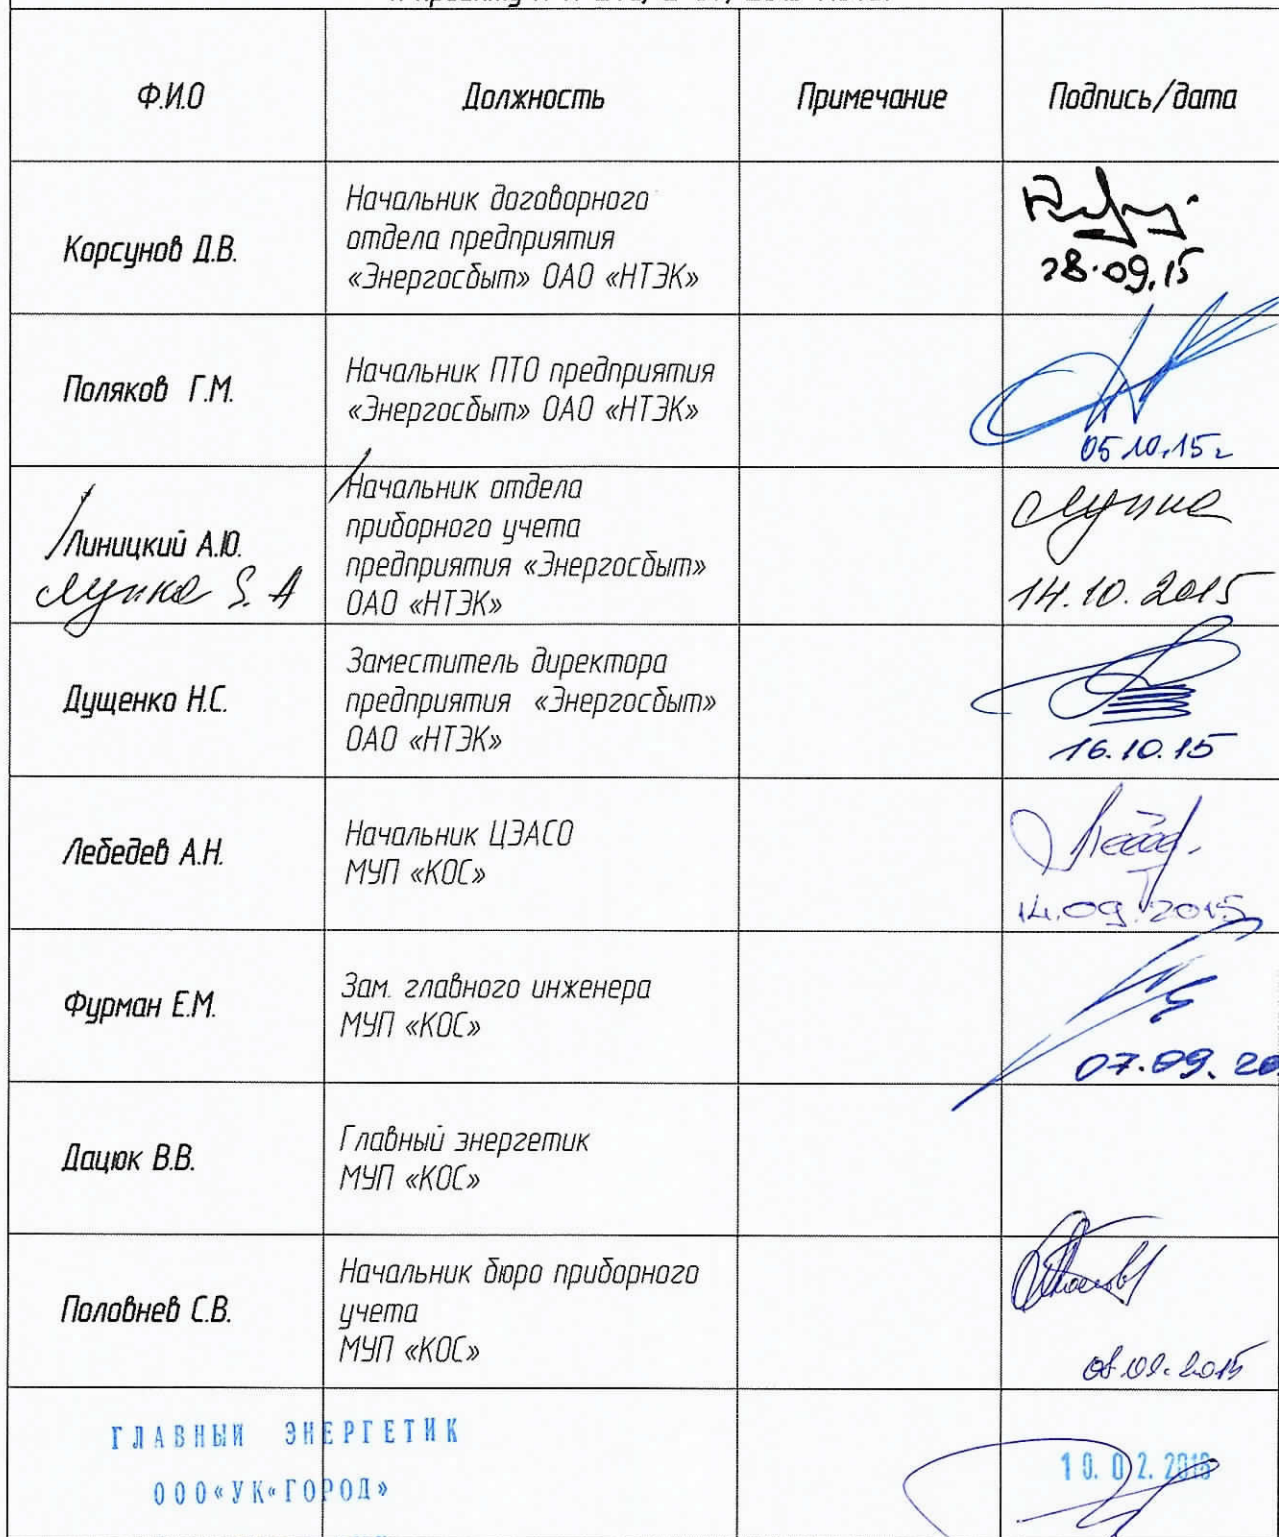 Ф.И.О Должность Примечание Подпись/дата
Корсунов Д.В.
Начальник договорного
отдела предприятия
«Энергосбыт» ОАО «НТЭК»
28.09.15
Поляков Г.М.
Начальник ПТО предприятия
«Энергосбыт» ОАО «НТЭК»
05.10.15г
Линицкий А.Ю.
Начальник отдела
приборного учета
предприятия «Энергосбыт»
ОАО «НТЭК»
14.10.2015
Дущенко Н.С.
Заместитель директора
предприятия «Энергосбыт»
ОАО «НТЭК»
16.10.15
Лебедев А.Н.
Начальник ЦЭАСО
МУП «КОС»
14.09.2015
Фурман Е.М.
Зам. главного инженера
МУП «КОС»
07.09.20
Дацюк В.В.
Главный энергетик
МУП «КОС»
Половнев С.В.
Начальник бюро приборного
учета
МУП «КОС»
ГЛАВНЫЙ ЭНЕРГЕТИК
ООО«УК«ГОРОД»